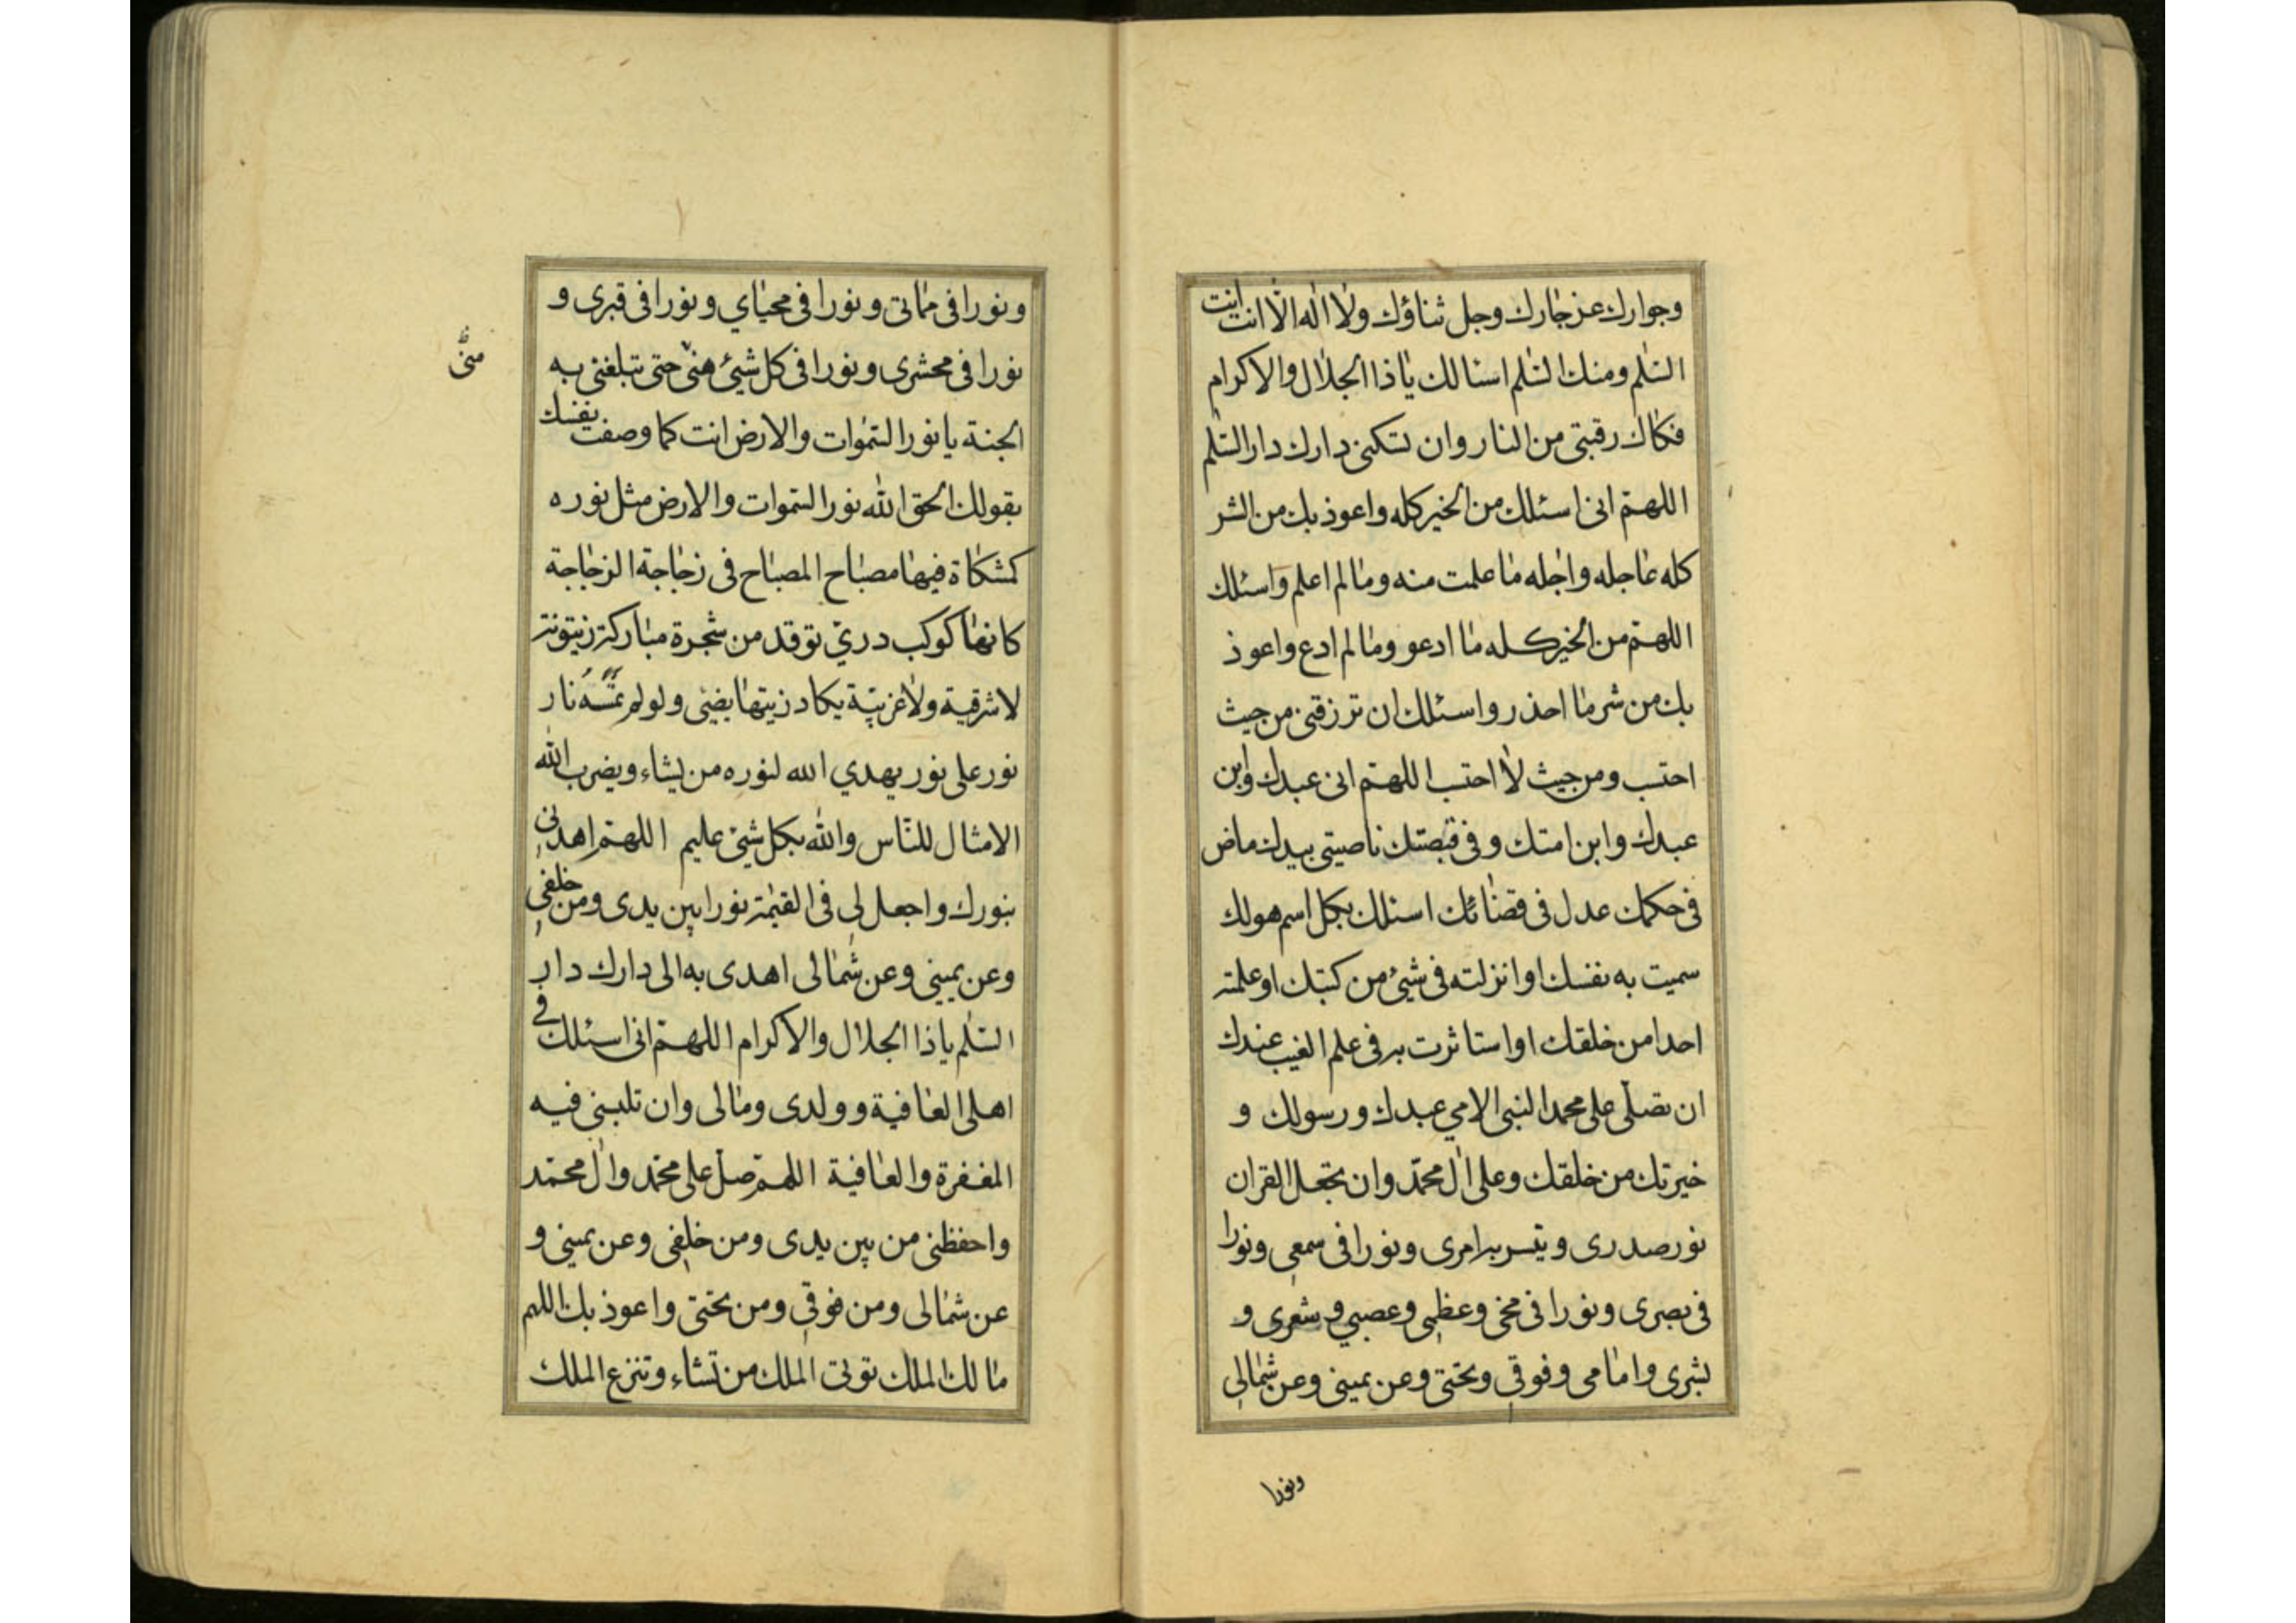 وجوارك عز جارك وجل ثناؤك ولا اله الا انت انت
السلم ومنك السلم اسئالك يا ذا الجلال والاكرام
فكاك رقبتي من النار وان تسكنني دارك دار السلم
اللهم اني اسئلك من الخير كله واعوذ بك من الشر
كله عاجله واجله ما علمت منه وما لم اعلم واسئلك
اللهم من الخير كله ما ادعو وما لم ادع واعوذ
بك من شر ما احذر واسئلك ان ترزقني من حيث
احتسب ومن حيث لا احتسب اللهم اني عبدك وابن
عبدك وابن امتك وفي قبضتك ناصيتي بيدك ماض
في حكمك عدل في قضائك اسئلك بكل اسم هو لك
سميت به نفسك او انزلته في شيئ من كتبك او علمته
احدا من خلقك او استاثرت به في علم الغيب عندك
ان تصلي على محمد النبي الامي عبدك ورسولك و
خيرتك من خلقك وعلى ال محمد وان تجعل القران
نور صدري وتيسر به امري ونورا في سمعي ونورا
في بصري ونورا في مخي وعظمي وعصبي وشعري و
بشري وامامي وفوقي وتحتي وعن يميني وعن شمالي
ونورا
ونورا في مماتي ونورا في محياي ونورا في قبري و
نورا في محشري ونورا في كل شيئ مني حتى تبلغني به
منّى
الجنة يا نور السموات والارض انت كما وصفت نفسك
بقولك الحق الله نور السموات والارض مثل نوره
كمشكاة فيها مصباح المصباح في زجاجة الزجاجة
كانها كوكب دري توقد من شجرة مباركة زيتونة
لا شرقية ولا غربية يكاد زيتها يضيئ ولو لم تمسسه نار
نور على نور يهدي الله لنوره من يشاء ويضرب الله
الامثال للناس والله بكل شيئ عليم اللهم اهدني
بنورك واجعل لي في القيمة نورا بين يدي ومن خلفي
وعن يميني وعن شمالي اهدى به الى دارك دار
السلم يا ذا الجلال والاكرام اللهم اني اسئلك في
اهلي العافية وولدي ومالي وان تلبسني فيه
المغفرة والعافية اللهم صل على محمد وال محمد
واحفظني من بين يدي ومن خلفي وعن يميني و
عن شمالي ومن فوقي ومن تحتي واعوذ بك اللهم
مالك الملك توتي الملك من تشاء وتنزع الملك